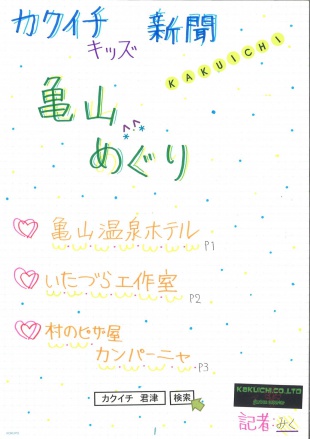 カクイチ 新聞
キッズ
KAKUICHI
亀山
めぐり
亀山温泉ホテル P1
いたづら工作室 P2
村のピザ屋
カンパーニャ P3
カクイチ 君津 検索
KAKUICHI.CO.,LTD
記者:みく